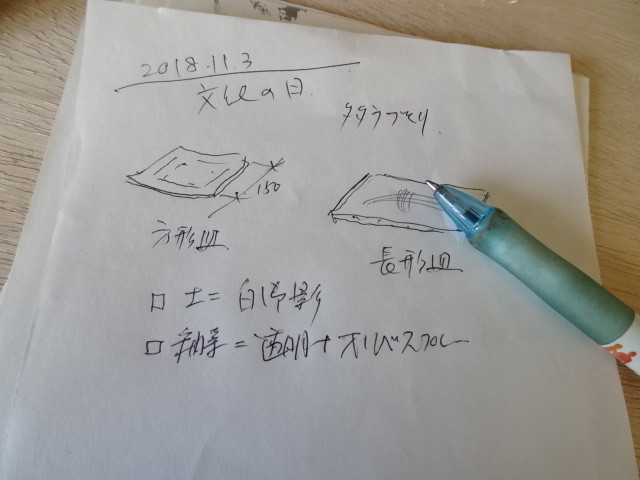 2018.11.3
文化の日
タタラづくり
150
方形皿
長形皿
□ 土=白御影
□ 釉薬=透明+オリベスプレー